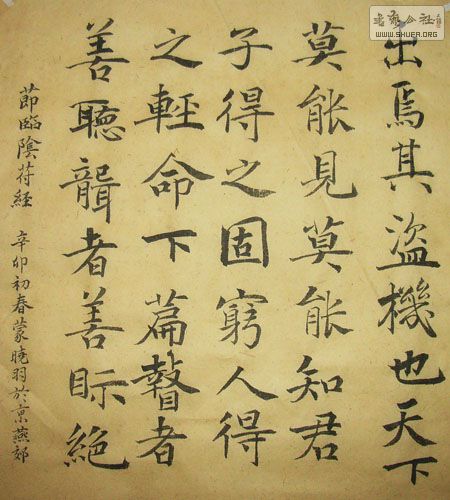 出焉其盜機也天下
莫能見莫能知君
子得之固窮人得
之輕命下篇瞽者
善聽聾者善眎絕
節臨陰符經 辛卯初春蒙曉羽於京燕郊
公社
WWW.SHUFA.ORG